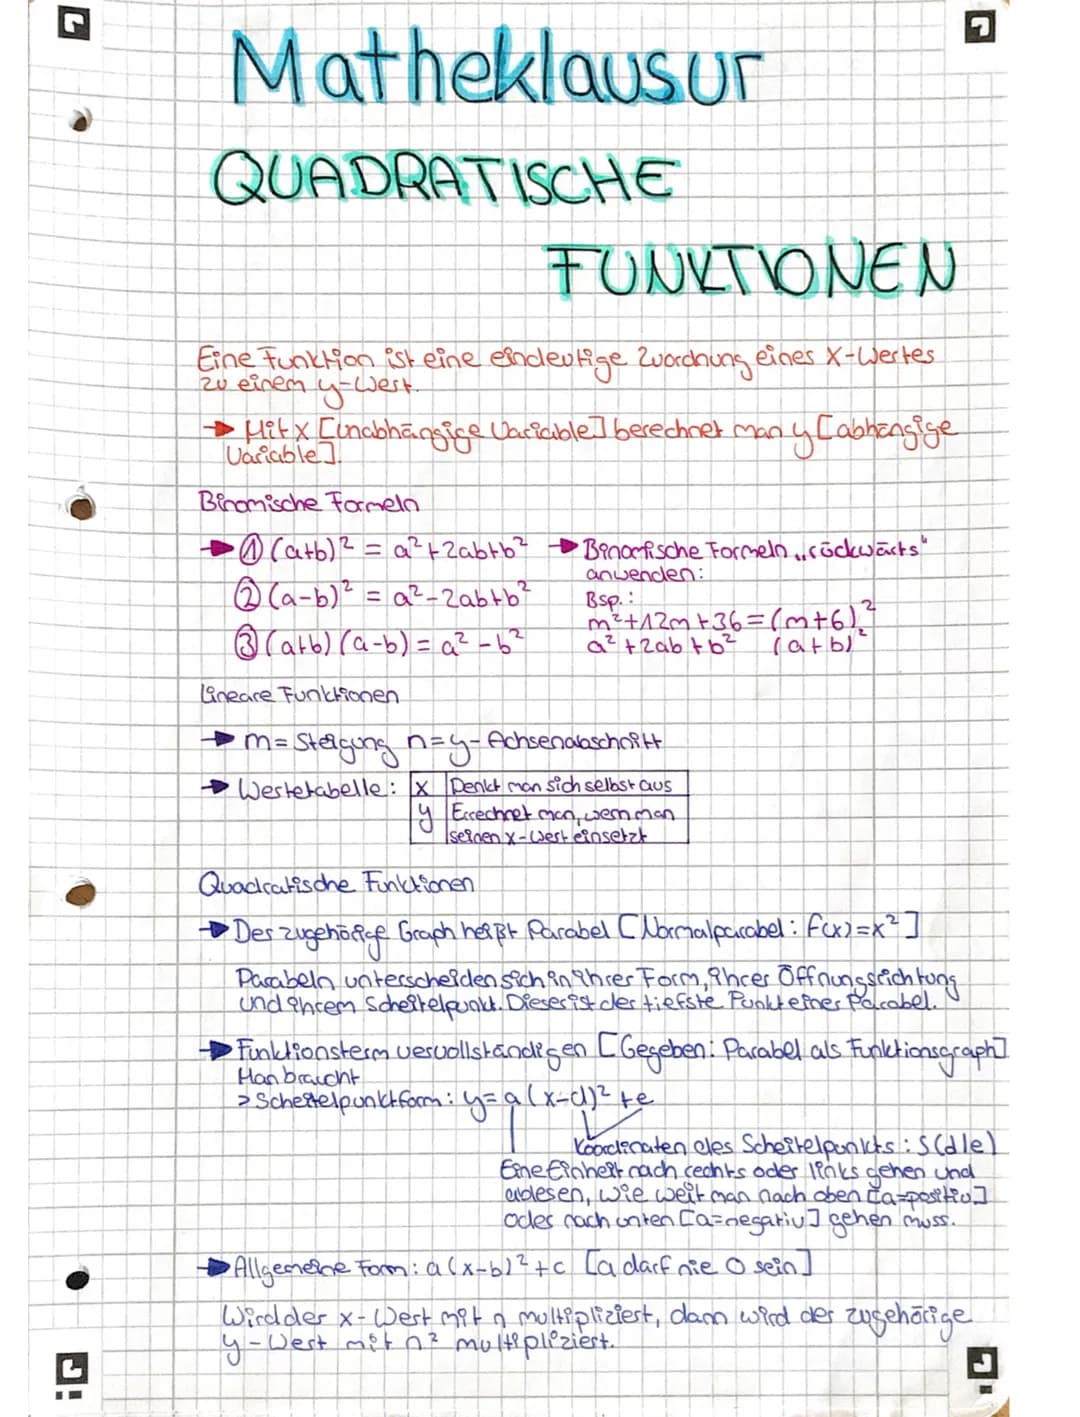 Matheklausur
QUADRATISCHE
FUNKTIONEN
Eine Funktion ist eine eindeutige Zuordnung eines x-Wertes
zu einem y-Wert.
→ Mit x [unabhängige Variable] berechnet man y [abhängige
Variable].
Binomische Formeln
→ ① (a+b)² = a²+2ab+b² → Binomische Formeln „rückwärts"
anwenden:
② (a-b)² = a²-2ab+b²
Bsp.:
m²+12m+36=(m+6)²
③ (a+b) (a-b) = a² - b²
a²+2ab+b² (a+b)²
Lineare Funktionen
→ m= Steigung n=y-Achsenabschnitt
→ Wertetabelle: x Denkt man sich selbst aus
y Errechnet man, wenn man
seinen x-Wert einsetzt
Quadratische Funktionen
→ Der zugehörige Graph heißt Parabel [Normalparabel: f(x)=x²]
Parabeln unterscheiden sich in ihrer Form, ihrer Öffnungsrichtung
und ihrem Scheitelpunkt. Dieser ist der tiefste Punkt einer Parabel.
→ Funktionsterm vervollständigen [Gegeben: Parabel als Funktionsgraph]
Man braucht
> Scheitelpunktform: y=a(x-d)²+e
Koordinaten des Scheitelpunkts: S(d|e)
Eine Einheit nach rechts oder links gehen und
ablesen, wie weit man nach oben [a=positiv]
oder nach unten [a=negativ] gehen muss.
→ Allgemeine Form: a(x-b)²+c [a darf nie 0 sein]
Wird der x-Wert mit n multipliziert, dann wird der zugehörige
y-Wert mit n² multipliziert.